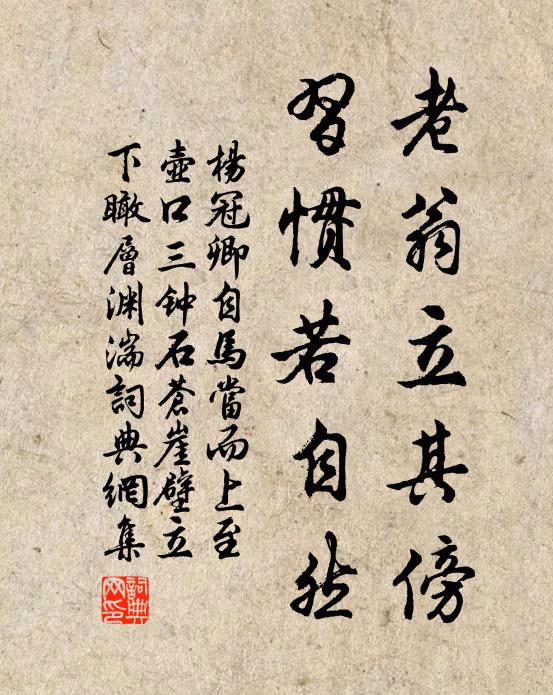 老翁立其傍
習慣若自然
楊冠卿自馬當而上至
壺口三钟石蒼崖壁立
下瞰層渊湍詞典網集
詞典网印